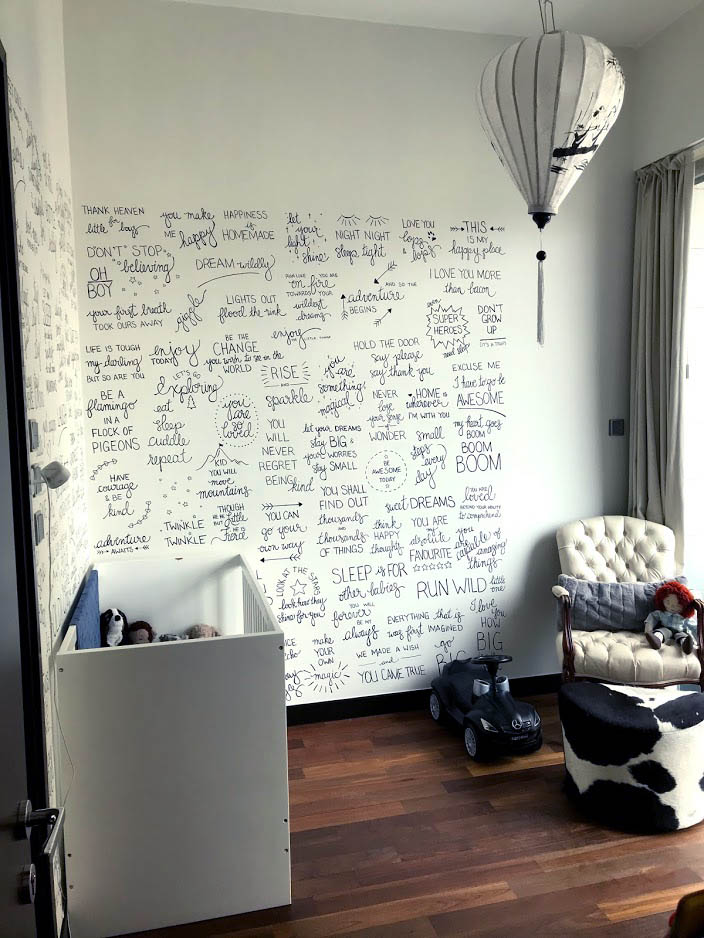 THANK HEAVEN
little for boys
you make
ME happy
HAPPINESS
is
HOMEMADE
let
your
light
shine
NIGHT NIGHT
sleeps tight
LOVE YOU
lops
& lops
THIS
IS MY
happy place
DON'T STOP
believing
OH
BOY
DREAM wildly
I LOVE YOU MORE
than bacon
your first breath
TOOK OURS AWAY
giggle
LIGHTS OUT
flood the rink
YOU ARE
on fire
TOWARDS YOUR
wildest
dreams
AND SO THE
adventure
BEGINS
SUPER
HEROES
need sleep
DON'T
GROW
UP
IT'S A TRAP!
LIFE IS TOUGH
my darling
BUT SO ARE YOU
enjoy
TODAY
BE THE
CHANGE
you wish to see in the
WORLD
enjoy
HOLD THE DOOR
say please
say thank you
EXCUSE ME
I have to go be
AWESOME
LET'S GO
exploring
RISE
AND
sparkle
you
are
something
magical
NEVER
lose
your sense of
WONDER
HOME is
wherever
I'M WITH YOU
BE A
flamingo
IN A
FLOCK OF
PIGEONS
eat
sleep
cuddle
repeat
you
are
so
loved
YOU
WILL
NEVER
REGRET
BEING
kind
let your DREAMS
stay BIG &
YOUR worries
stay SMALL
small
steps
every
day
my heart goes
BOOM
BOOM
BOOM
KID
YOU WILL
move
mountains
BE
AWESOME
TODAY
HAVE
courage
& BE
kind
YOU SHALL
FIND OUT
thousands
AND
thousands
OF THINGS
sweet DREAMS
YOU ARE
loved
BEYOND YOUR ABILITY
to comprehend
THOUGH
HE BE
BUT little
HE IS
fierce
YOU CAN
go your
own way
think
HAPPY
thoughts
YOU ARE
my absolute
FAVOURITE
you are
capable of
amazing
things
TWINKLE
TWINKLE
adventure
AWAITS
LOOK AT THE STARS
look how they
shine for you
SLEEP is FOR
other babies
RUN WILD little
one
YOU WILL
forever
BE MY
always
EVERYTHING that is
was first IMAGINED
I love
you
HOW
BIG
make
YOUR
OWN
magic
WE MADE A WISH
and
YOU CAME TRUE
go
BIG